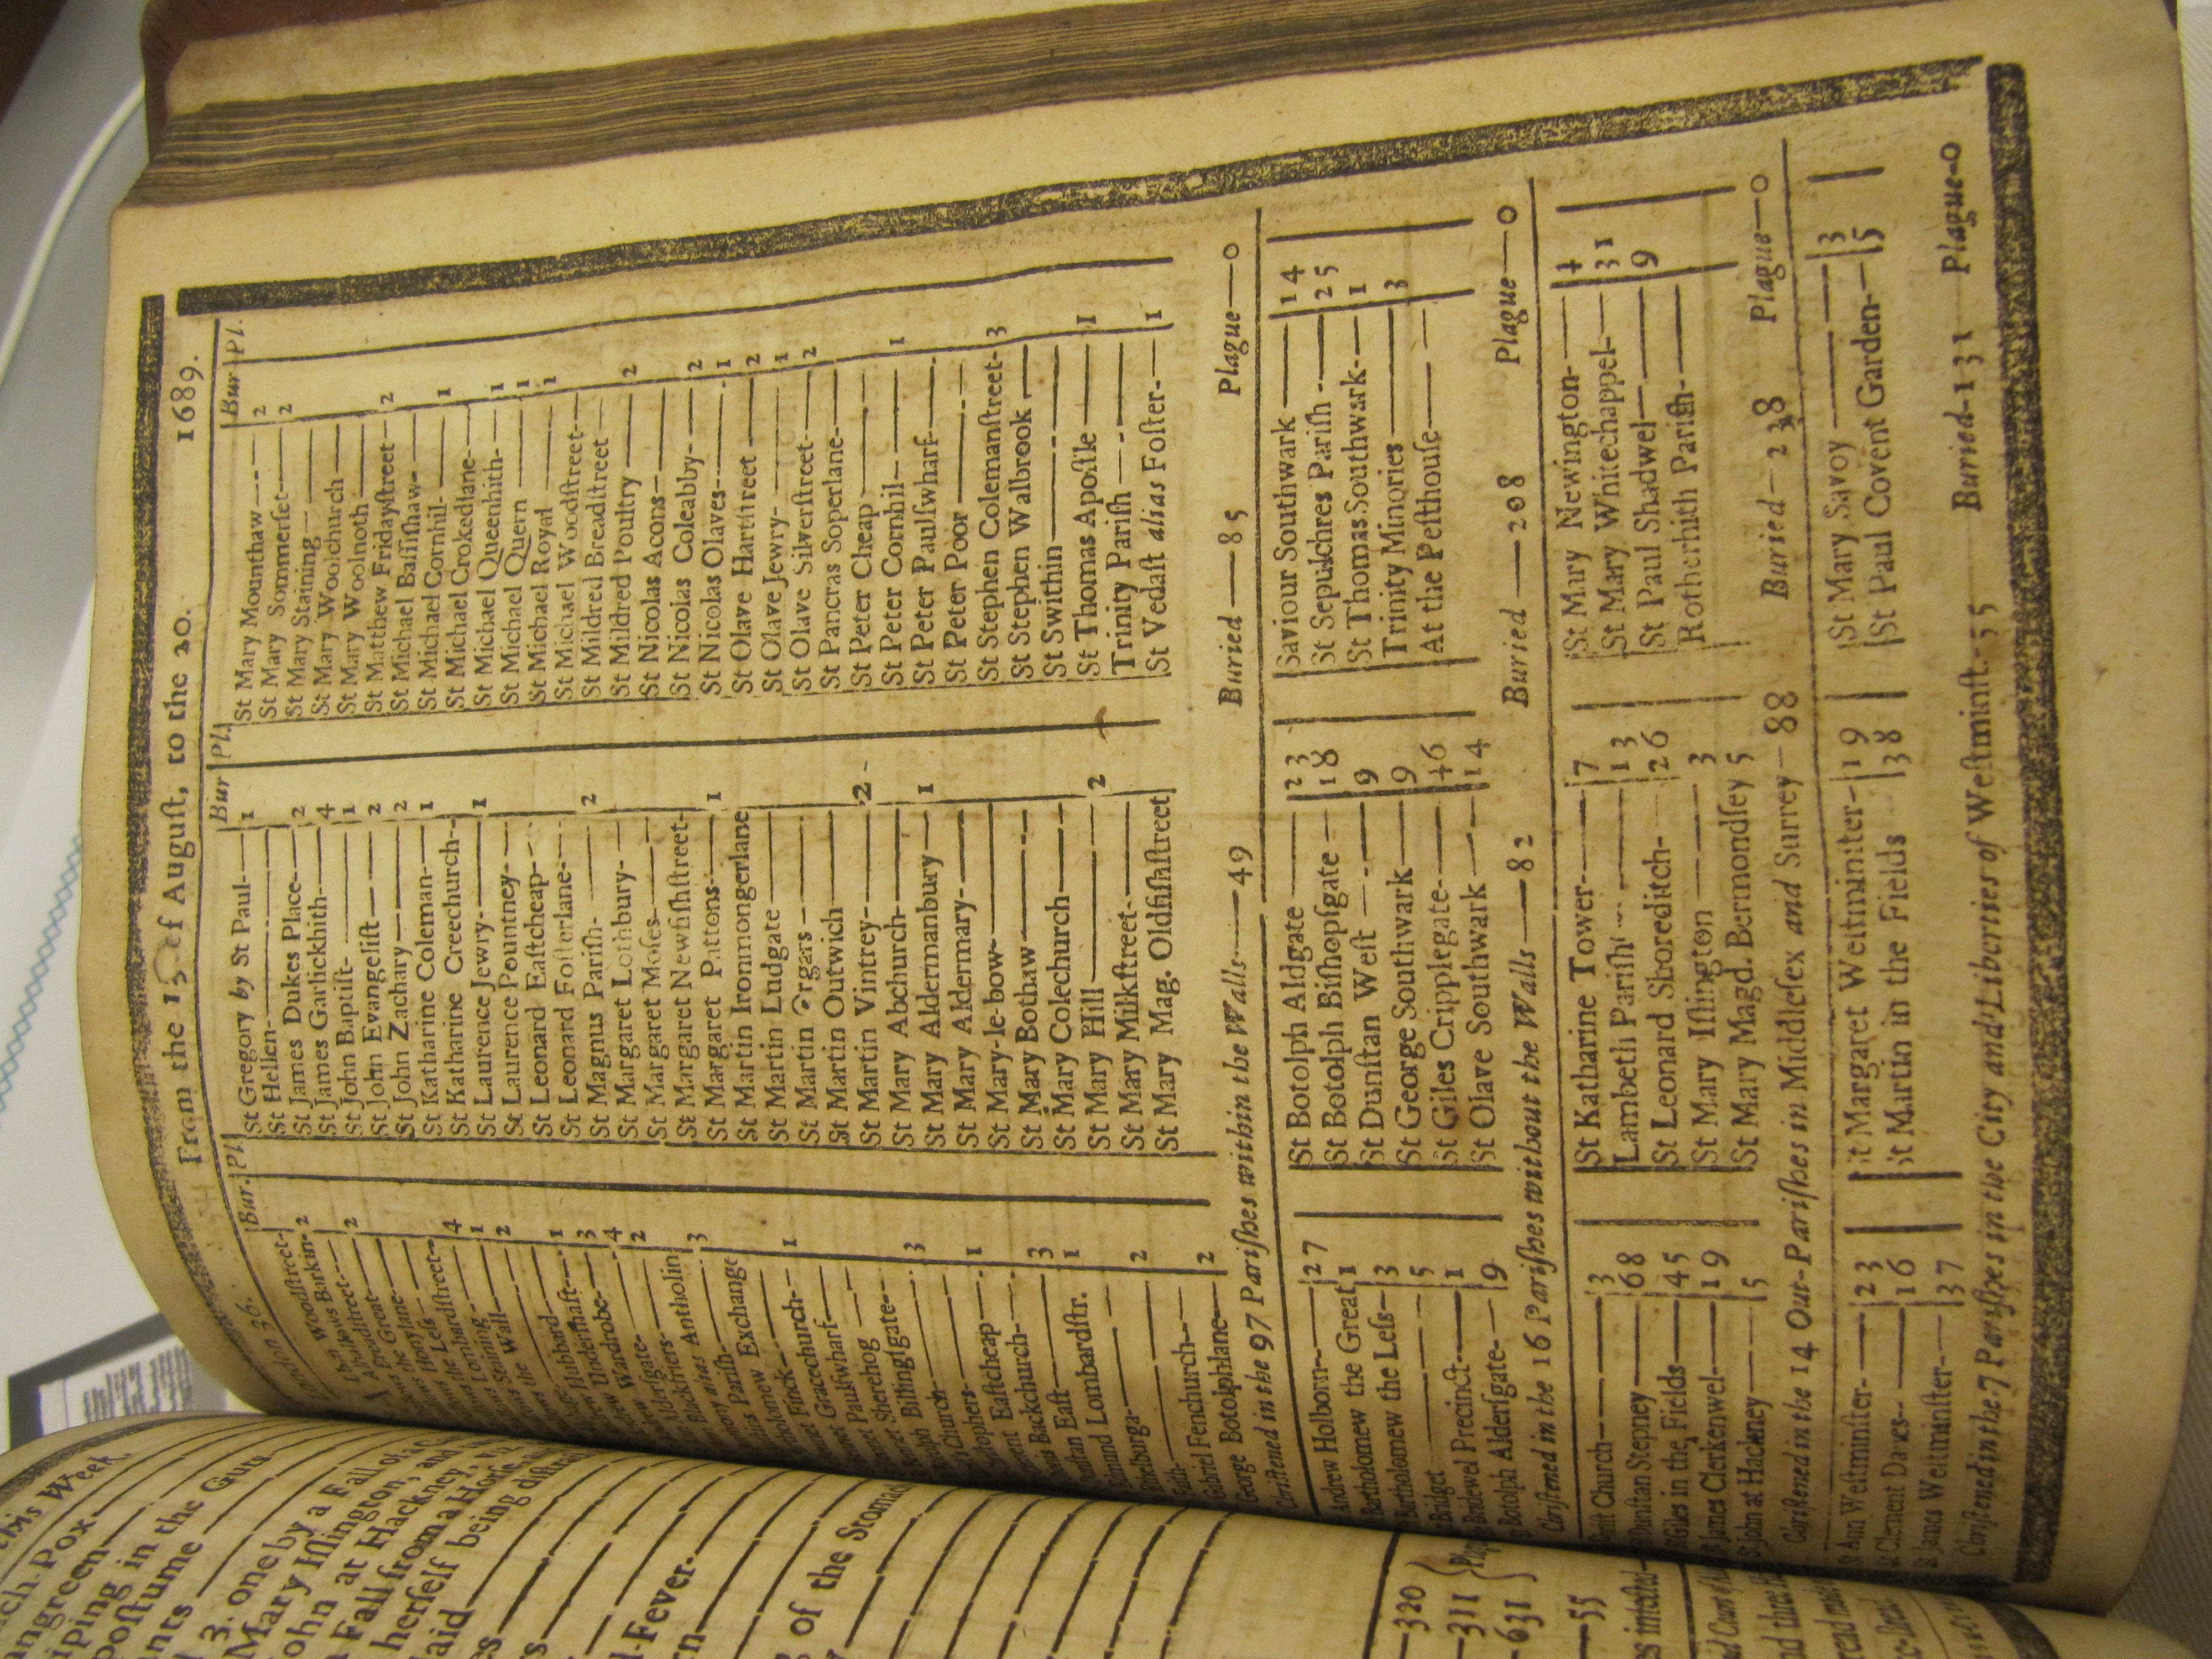 London 36. From the 13 of August, to the 20. 1689.
Bur. Pl.
Woodstreet-
Barkin- 2
Breadstreet---- 2
Great
Honylane
Less
Lombardstreet- 4
Staining - 1
the Wall- 2
Hubbard- 1
Undershaft--- 3
Wardrobe- 4
Aldersgate- 2
Blackfriers-
alias Antholin 3
Parish-
Exchange
Finck 1
Gracechurch-
Paulswharf-
Sherehog
Billingsgate-- 3
Church
Christophers- 1
Eastcheap
Backchurch- 3
Dunstan East 1
Edmund Lombardstr.
Ethelburga- 2
Faith
Gabriel Fenchurch- 2
George Botolphlane-
Bur Pl.
St Gregory by St Paul 1
St Hellen
St James Dukes Place 2
St James Garlickhith 4
St John Baptist 1
St John Evangelist 2
St John Zachary 2
St Katharine Coleman 1
St Katharine Creechurch
St Laurence Jewry 1
St Laurence Pountney
St Leonard Eastcheap
St Leonard Fosterlane
St Magnus Parish 2
St Margaret Lothbury
St Margaret Moses
St Margaret Newfishstreet
St Margaret Pattons 1
St Martin Ironmongerlane
St Martin Ludgate
St Martin Orgars
St Martin Outwich
St Martin Vintrey 2
St Mary Abchurch
St Mary Aldermanbury 1
St Mary Aldermary
St Mary-le-bow
St Mary Bothaw
St Mary Colechurch
St Mary Hill 2
St Mary Milkstreet
St Mary Mag. Oldfishstreet
Bur Pl.
St Mary Mounthaw 2
St Mary Sommerset 2
St Mary Staining
St Mary Woolchurch
St Mary Woolnoth
St Matthew Fridaystreet 2
St Michael Bassishaw
St Michael Cornhil 1
St Michael Crokedlane
St Michael Queenhith 1
St Michael Quern 1
St Michael Royal 1
St Michael Woodstreet
St Mildred Breadstreet
St Mildred Poultry 2
St Nicolas Acons
St Nicolas Coleabby 2
St Nicolas Olaves 1
St Olave Hartstreet 2
St Olave Jewry 1
St Olave Silverstreet 2
St Pancras Soperlane
St Peter Cheap
St Peter Cornhil 1
St Peter Paulswharf
St Peter Poor
St Stephen Colemanstreet 3
St Stephen Walbrook
St Swithin
St Thomas Apostle 1
Trinity Parish
St Vedast alias Foster 1
Christened in the 97 Parishes within the Walls 49 Buried 85 Plague 0
Andrew Holborn 27
Bartholomew the Great 1
Bartholomew the Less 3
Bridget 5
Bridewel Precinct 1
Botolph Aldersgate 9
St Botolph Aldgate 23
St Botolph Bishopsgate 18
St Dunstan West 9
St George Southwark 9
St Giles Cripplegate 46
St Olave Southwark 14
Saviour Southwark 14
St Sepulchres Parish 25
St Thomas Southwark 1
Trinity Minories 3
At the Pesthouse
Christened in the 16 Parishes without the Walls 82 Buried 208 Plague 0
Christ Church 3
Dunstan Stepney 68
Giles in the Fields 45
St James Clerkenwel 19
St John at Hackney 5
St Katharine Tower 7
Lambeth Parish 13
St Leonard Shoreditch 26
St Mary Islington 3
St Mary Magd. Bermondsey 5
St Mary Newington 4
St Mary Whitechappel 31
St Paul Shadwel 9
Rotherhith Parish
Christened in the 14 Out-Parishes in Middlesex and Surrey 88 Buried 238 Plague 0
St Ann Westminster 23
St Clement Danes 16
St James Westminster 37
St Margaret Westminster 19
St Martin in the Fields 38
St Mary Savoy 3
St Paul Covent Garden 15
Christened in the 7 Parishes in the City and Liberties of Westminst. 55 Buried 131 Plague 0
this Week.
Pox
in the Guts
postume
3. one by a Fall
Mary Islington,
John at Hackney, and
Fall from a Horse,
herself being
Fever
of the Stomach
320
311
631
55